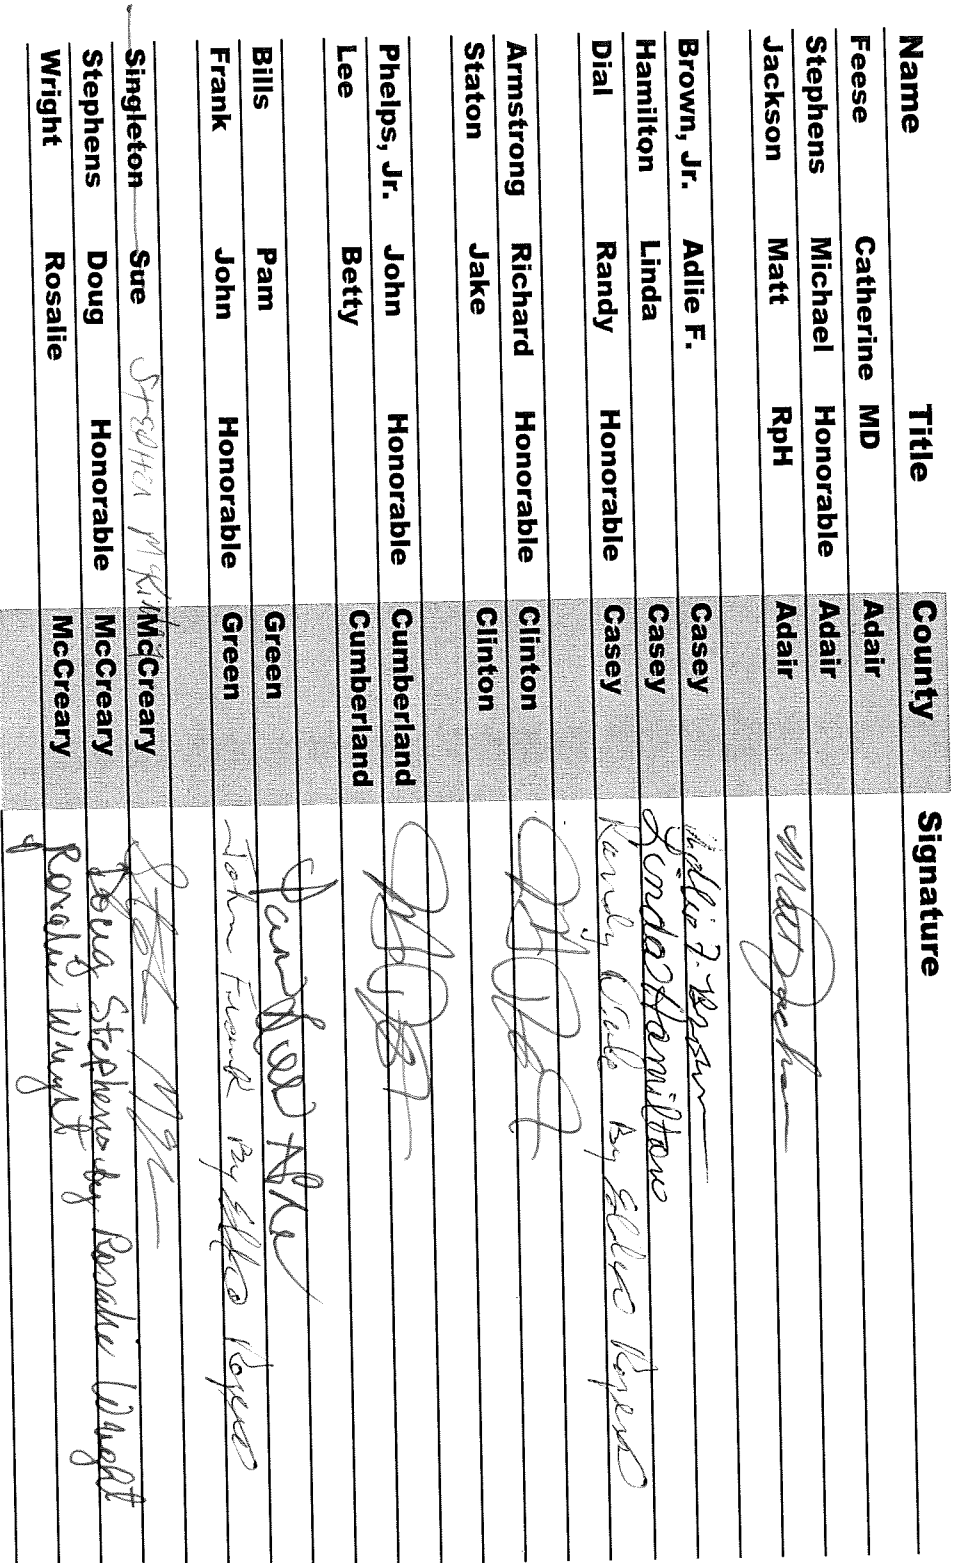 Name Title County Signature
Feese Catherine MD Adair
Stephens Michael Honorable Adair
Jackson Matt RpH Adair Matt Jackson
Brown, Jr. Adlie F. Casey Adlie F. Brown
Hamilton Linda Casey Linda Hamilton
Dial Randy Honorable Casey Randy Dial By Rogers
Armstrong Richard Honorable Clinton
Staton Jake Clinton
Phelps, Jr. John Honorable Cumberland
Lee Betty Cumberland
Bills Pam Green Pam Bills
Frank John Honorable Green John Frank By Rogers
Singleton Sue Stephen McCreary
Stephens Doug Honorable McCreary Doug Stephens by Rosalie Wright
Wright Rosalie McCreary Rosalie Wright